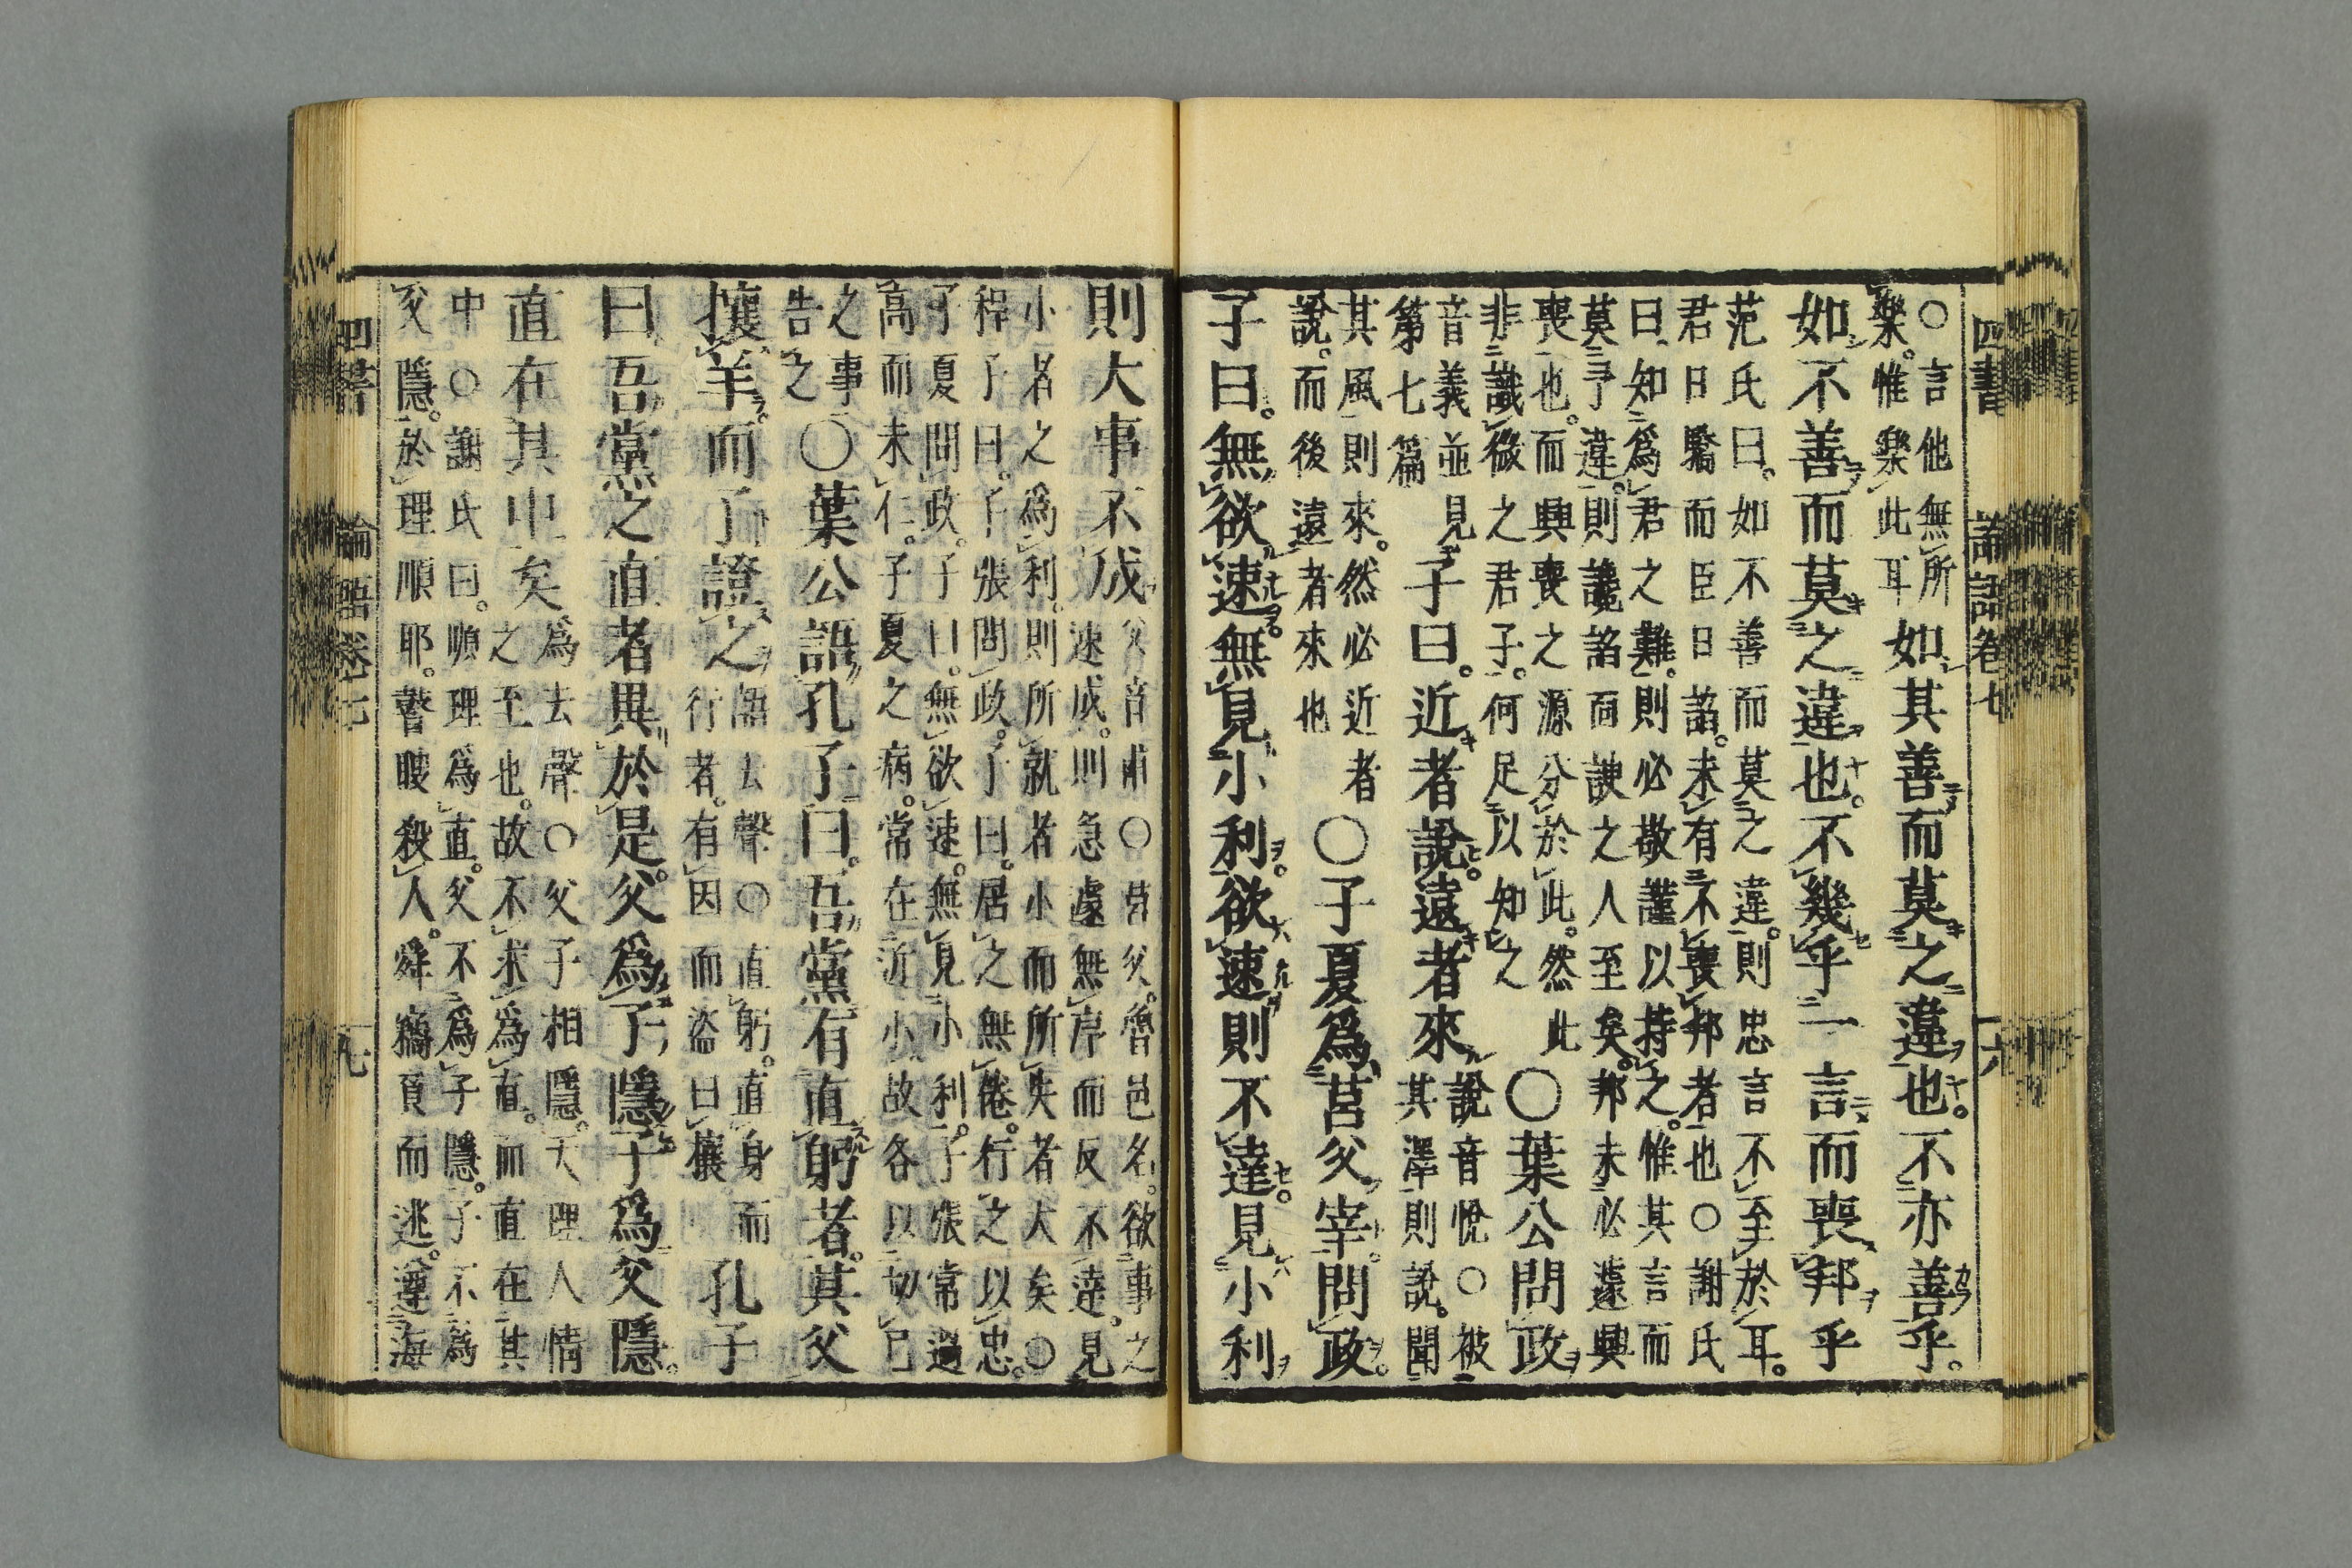 四書 論語卷七 十六
○言他無所
樂惟樂此耳
如其善而莫之違也不亦善乎
如不善而莫之違也不幾乎一言而喪邦乎
范氏曰如不善而莫之違則忠言不至於耳
君日驕而臣日諂未有不喪邦者也○謝氏
曰知爲君之難則必敬謹以持之惟其言而
莫予違則讒諂面諛之人至矣邦未必遽興
喪也而興喪之源分於此然此
非識微之君子何足以知之
○葉公問政
音義並見
第七篇
子曰近者說遠者來
說音悅○被
其澤則說聞
其風則來然必近者
說而後遠者來也
○子夏爲莒父宰問政
子曰無欲速無見小利欲速則不達見小利
則大事不成
父音甫○莒父魯邑名欲事之
速成則急遽無序而反不達見
小者之爲利則所就者小而所失者大矣○
程子曰子張問政子曰居之無倦行之以忠
子夏問政子曰無欲速無見小利子張常過
高而未仁子夏之病常在近小故各以切己
之事
告之
○葉公語孔子曰吾黨有直躬者其父
攘羊而子證之
語去聲○直躬直身而
行者有因而盜曰攘
孔子
曰吾黨之直者異於是父爲子隱子爲父隱
直在其中矣
爲去聲○父子相隱天理人情
之至也故不求爲直而直在其
中○謝氏曰順理爲直父不爲子隱子不爲
父隱於理順耶瞽瞍殺人舜竊負而逃遵海
四書 論語卷七 十七